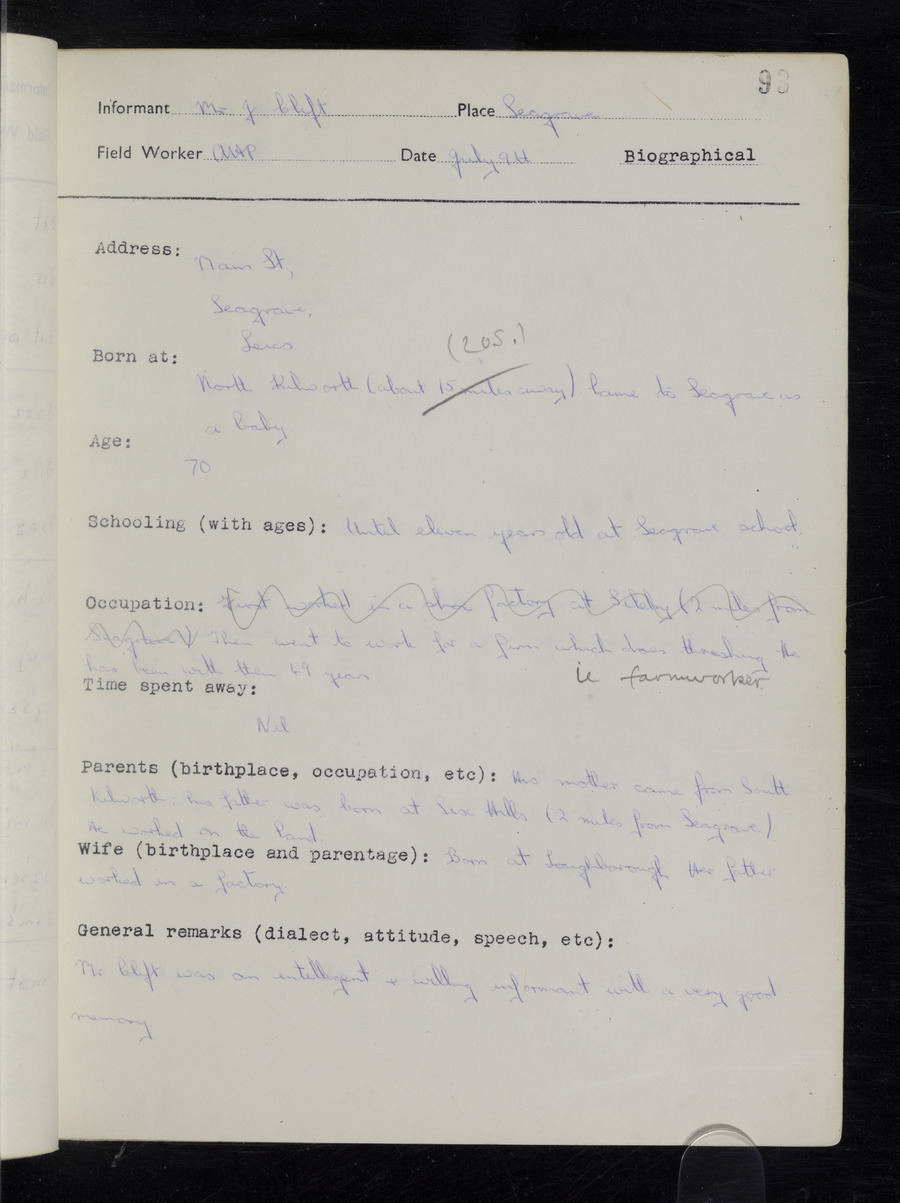 93
Informant Mr J Clift Place Seagrave
Field Worker Date July 9th Biographical
Address:
Main St,
Seagrave,
Leics
Born at:
(20S.)
North Kilworth (about 15 miles away). Came to Seagrave as
a baby
Age:
70
Schooling (with ages): Until eleven years old at Seagrave school.
Occupation: First worked in a shoe factory at Sileby (2 miles from
Seagrave) Then went to work for a firm which does threshing He
has been with them 49 years.
ie farmworker
Time spent away:
Nil
Parents (birthplace, occupation, etc): His mother came from South
Kilworth; his father was born at Six Hills (2 miles from Seagrave)
He worked on the land.
Wife (birthplace and parentage): Born at Loughborough Her father
worked in a factory.
General remarks (dialect, attitude, speech, etc):
Mr Clift was an intelligent + willing informant with a very good
memory